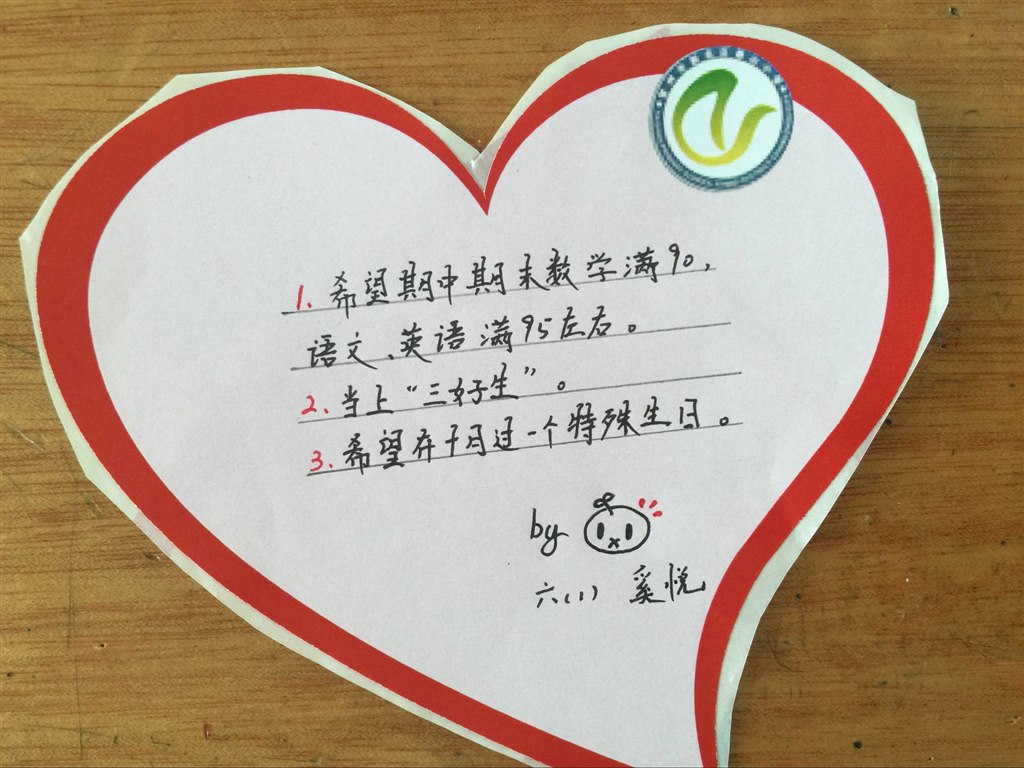 1. 希望期中期末数学满90，
语文、英语满95左右。
2. 当上“三好生”。
3. 希望在十月过一个特殊生日。
by
六(1) 奚悦